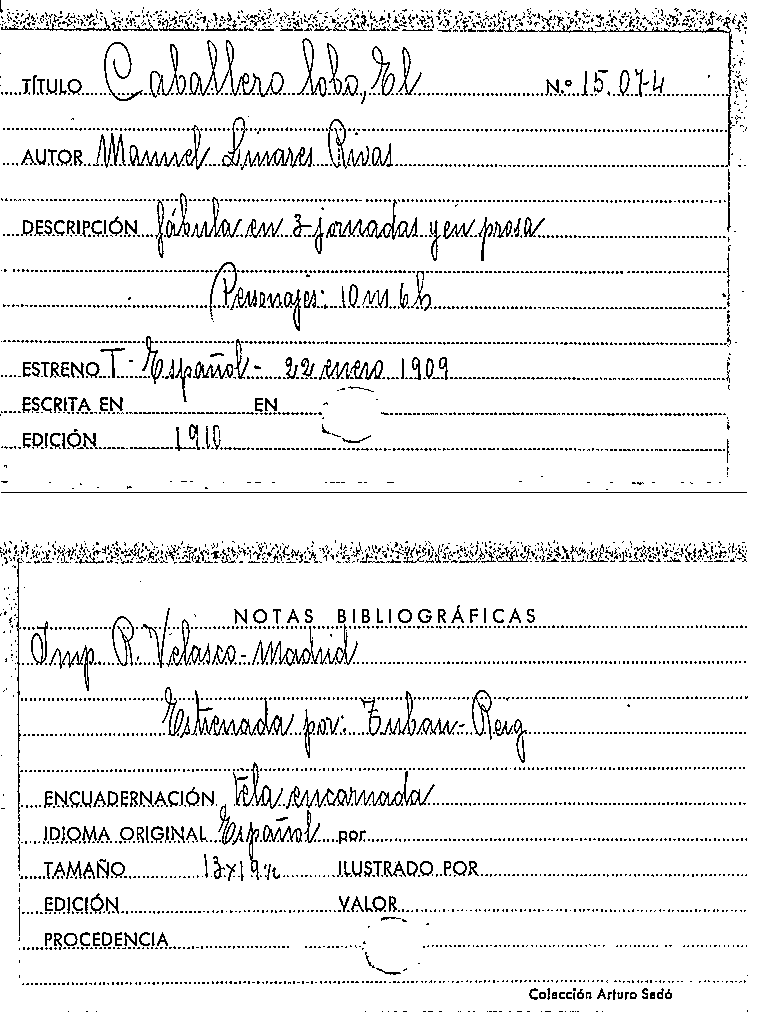 TÍTULO Caballero lobo, El N.º 15.074
AUTOR Manuel Linares Rivas
DESCRIPCIÓN fábula en 3 jornadas y en prosa
Personajes: 10 m 6 h
ESTRENO T- Español- 22 enero 1909
ESCRITA EN EN
EDICIÓN 1910
NOTAS BIBLIOGRÁFICAS
Imp. R. Velasco- Madrid
Estrenada por: Tubau- Reig
ENCUADERNACIÓN Tela encarnada
IDIOMA ORIGINAL Español por
TAMAÑO 13x19 ILUSTRADO POR
EDICIÓN VALOR
PROCEDENCIA
Colección Arturo Sedó